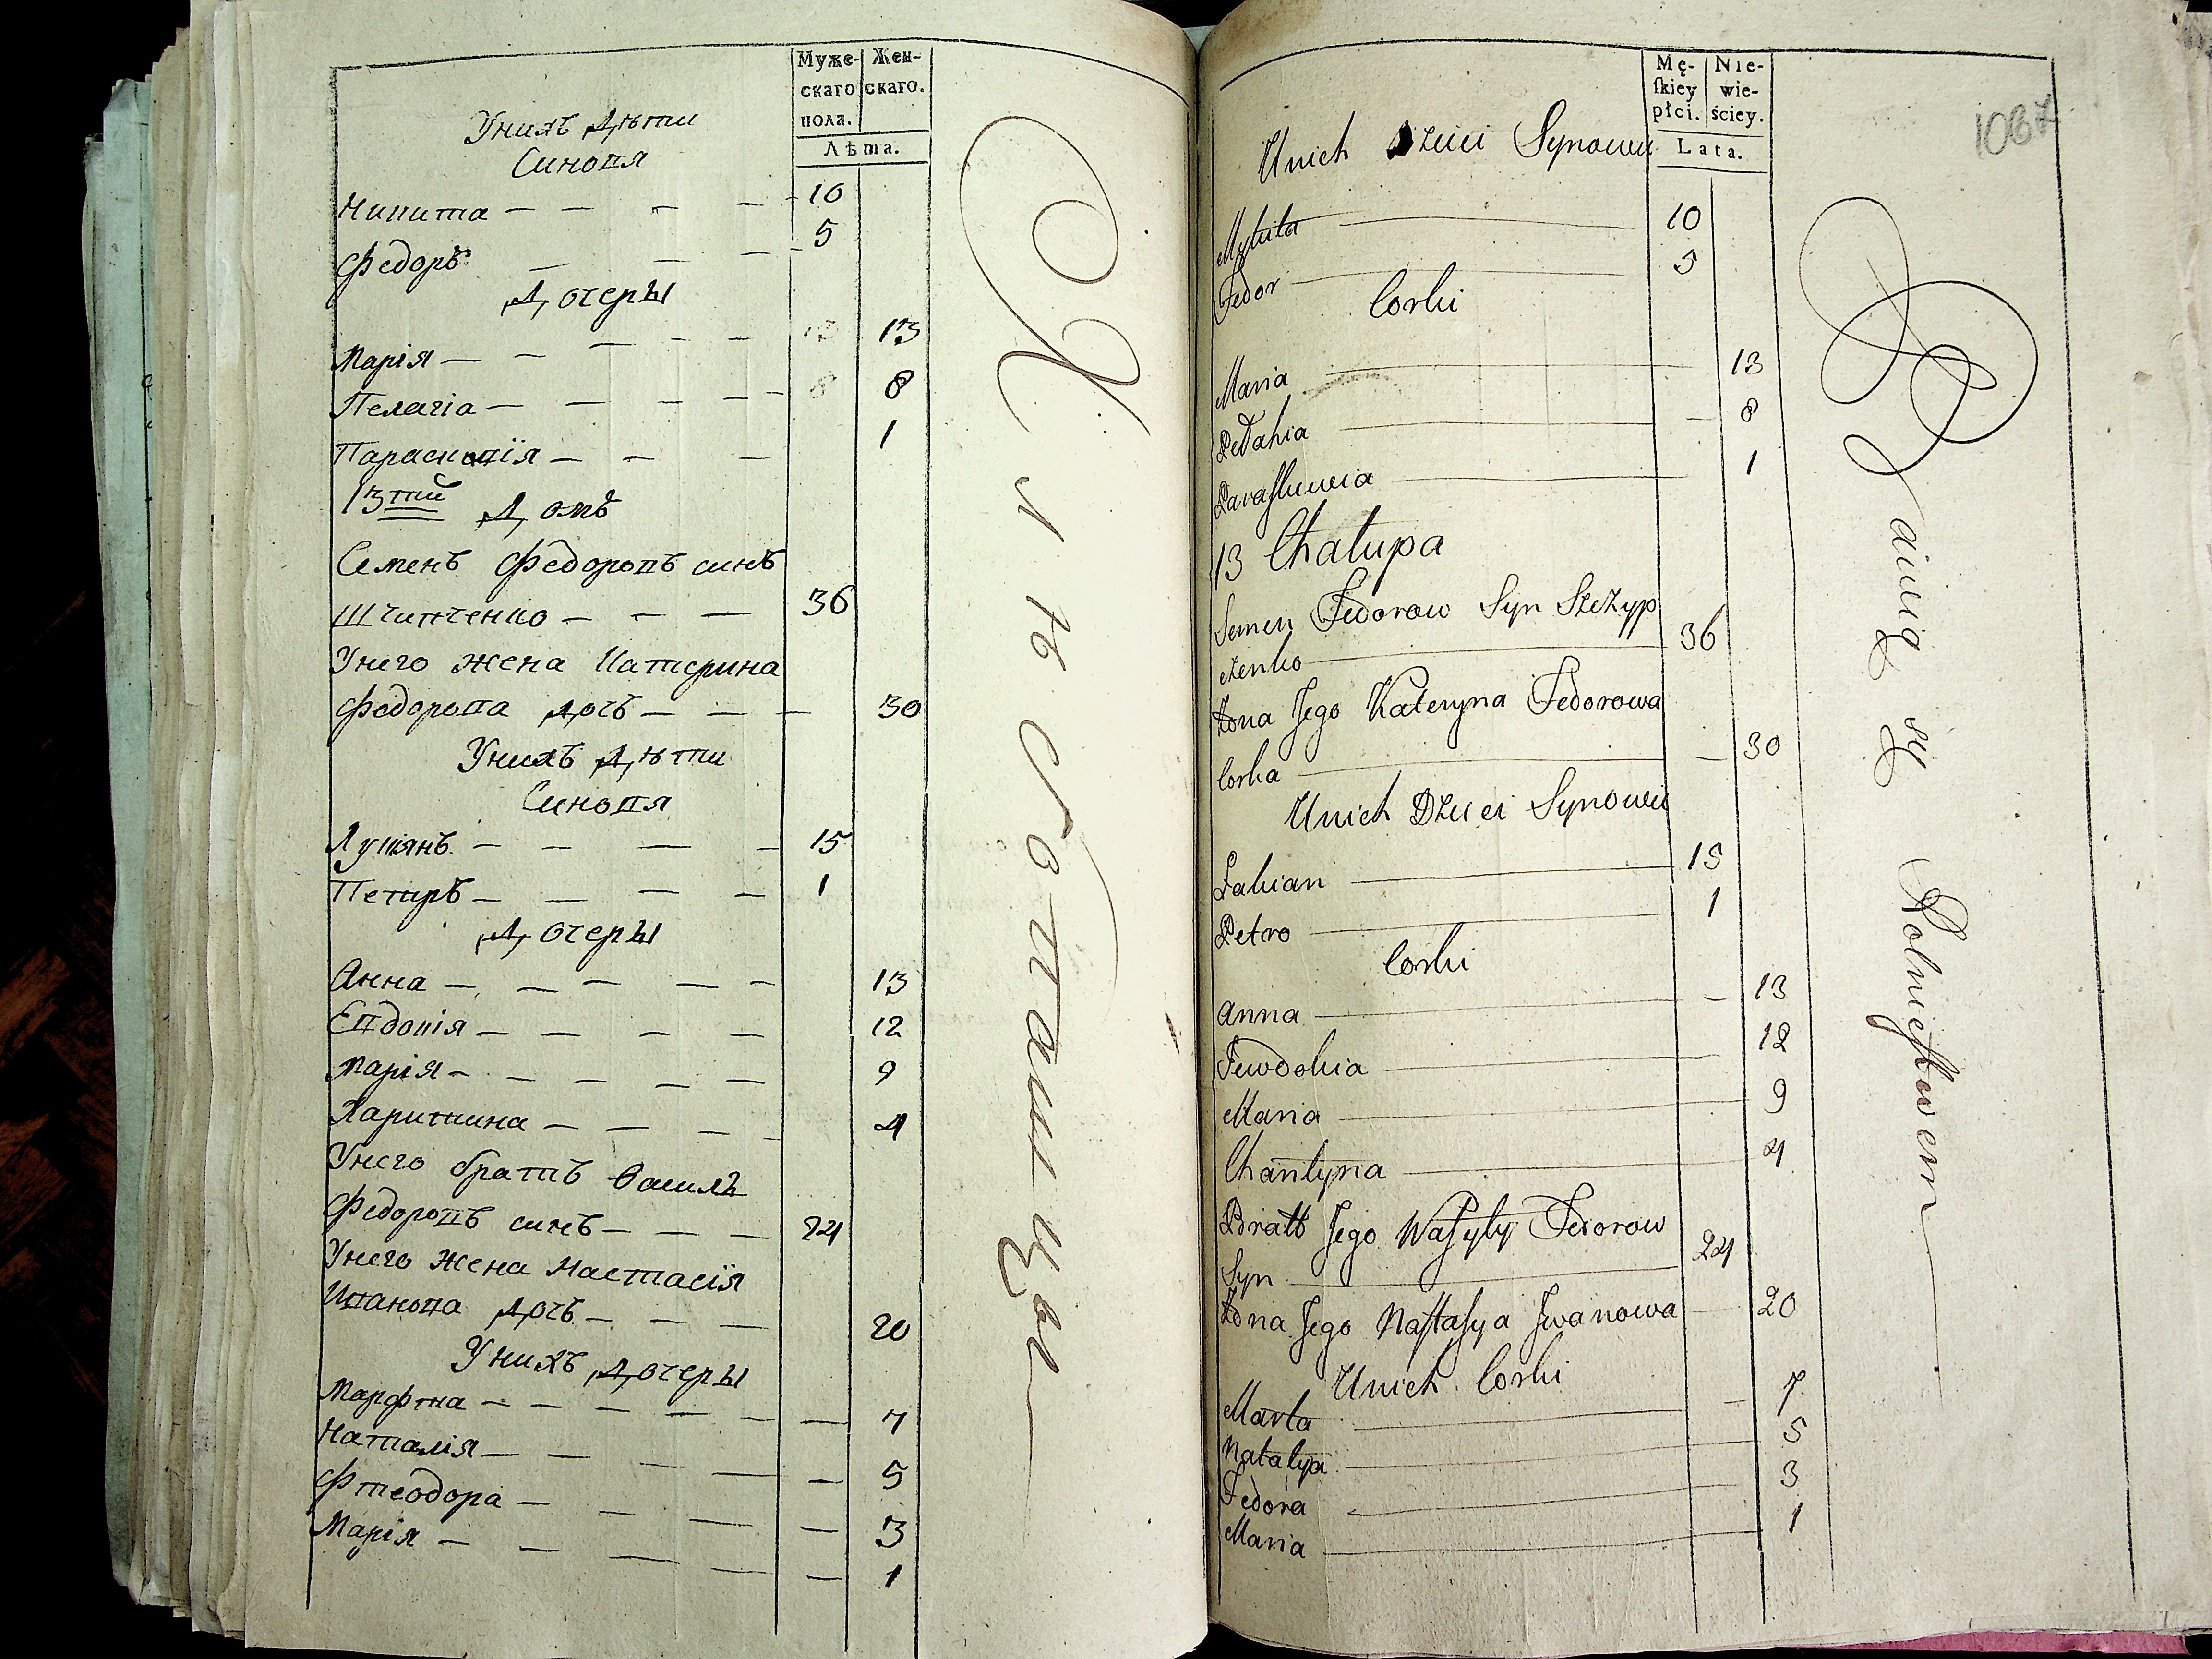 Муже-
скаго
пола.
Жен-
скаго.
Лѣта.
Унихъ Дѣти
Синовя
Никита 10
Федоръ 5
Дочеры
Марія 13 13
Пелагіа 8 8
Параскивія 1
13тый Домъ
Семенъ Федоровъ синъ
Шчипченко 36
Унего жена Катерина
Федорова дочь 30
Унихъ Дѣти
Синовя
Лукянъ 15
Петръ 1
Дочеры
Анна 13
Евдокія 12
Марія 9
Харитина 4
Унего братъ Василь
Федоровъ синъ 24
Унего жена Настасія
Иванова дочь 20
Унихъ дочеры
Марфта 7
Наталія 5
Фтеодора 3
Марія 1
Mę-
skiey
płci.
Nie-
wie-
ściey.
Lata.
1037
Unich Dzieci Synowie
Mykita 10
Fedor 5
Corki
Maria 13
Pełahia 8
Paraskiewia 1
13 Chałupa
Semen Fedorow Syn Szczyp
czenko 36
Zona Jego Kateryna Fedorowa
Corka 30
Unich Dzieci Synowie
Łukian 15
Petro 1
Corki
Anna 13
Jewdokia 12
Maria 9
Charytyna 4
Bratt Jego Wasyly Fedorow
Syn 24
Zona Jego Nastasya Iwanowa 20
Unich Corki
Marta 7
Natalya 5
Fedora 3
Maria 1
Bawią się Rolnictwem